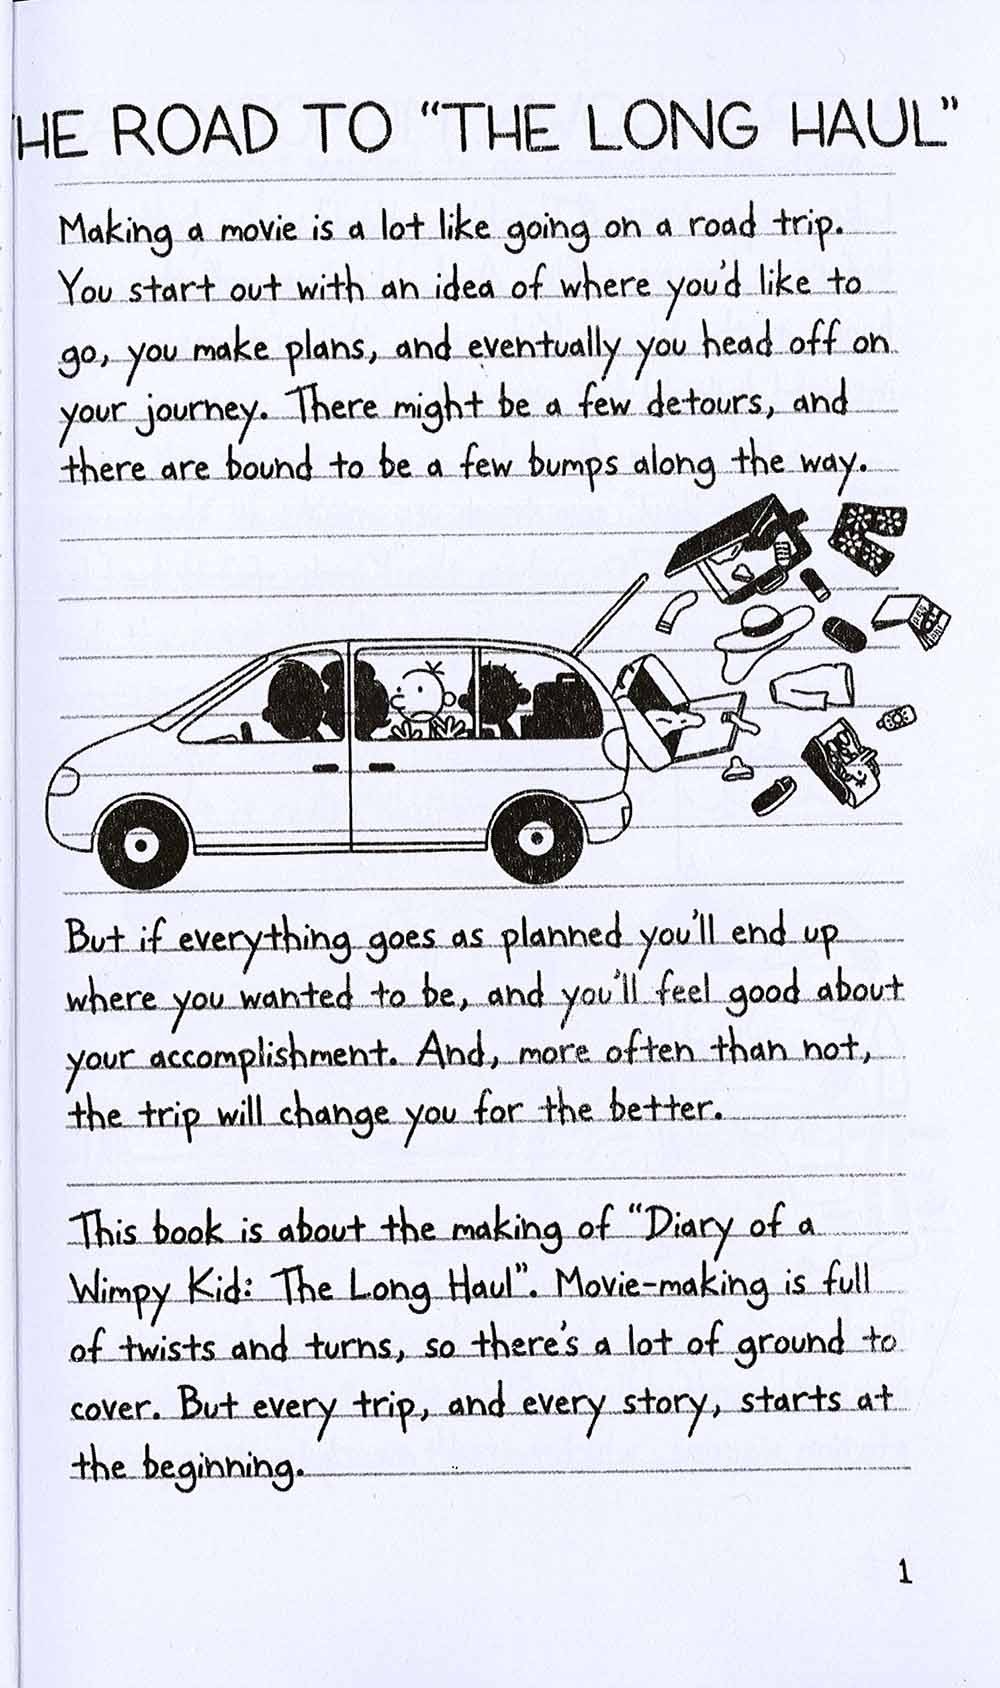 HE ROAD TO “THE LONG HAUL”
Making a movie is a lot like going on a road trip.
You start out with an idea of where you'd like to
go, you make plans, and eventually you head off on
your journey. There might be a few detours, and
there are bound to be a few bumps along the way.
But if everything goes as planned you'll end up
where you wanted to be, and you'll feel good about
your accomplishment. And, more often than not,
the trip will change you for the better.
This book is about the making of “Diary of a
Wimpy Kid: The Long Haul”. Movie-making is full
of twists and turns, so there's a lot of ground to
cover. But every trip, and every story, starts at
the beginning.
1